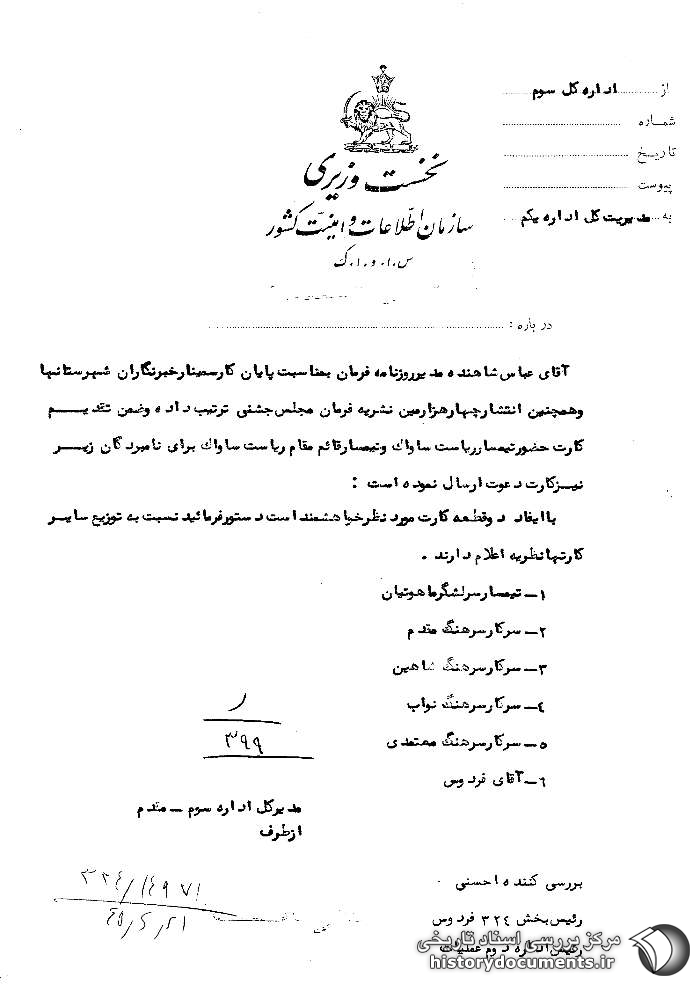 از اداره کل سوم
شماره
تاریخ
پیوست
به مدیریت کل اداره یکم
نخست وزیری
سازمان اطلاعات و امنیت کشور
س.ا.و.ا.ک
درباره :
آقای عباس شاهنده مدیر روزنامه فرمان بمناسبت پایان کار سمینار خبرنگاران شهرستانها
وهمچنین انتشار چهارهزارمین نشریه فرمان مجلس جشنی ترتیب داده وضمن تقدیم
کارت حضور تیمسار ریاست ساواک وتیمسار قائم مقام ریاست ساواک برای نامبردگان زیر
نیز کارت دعوت ارسال نموده است :
با ایفاد دو قطعه کارت مورد نظر خواهشمند است دستور فرمائید نسبت به توزیع سایر
کارتها نظریه اعلام دارند .
۱- تیمسار سرلشگر ماهوتیان
۲- سرکار سرهنگ مقدم
۳- سرکار سرهنگ شاهین
۴- سرکار سرهنگ نواب
۵- سرکار سرهنگ معتمدی
۶- آقای فردوس
ر
۳۹۹
مدیرکل اداره سوم - مقدم
از طرف
بررسی کننده احسنی
رئیس بخش ۳۲۴ فردوس
رئیس اداره دوم عملیات
۳۲۴/۱۴۹۷۱
مرکز بررسی اسناد تاریخی
historydocuments.ir